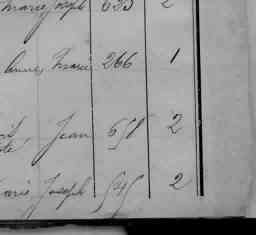 Marie Joseph 633 2
Anne, Marie 266 1
Jean 651 2
Marie Joseph 545 2